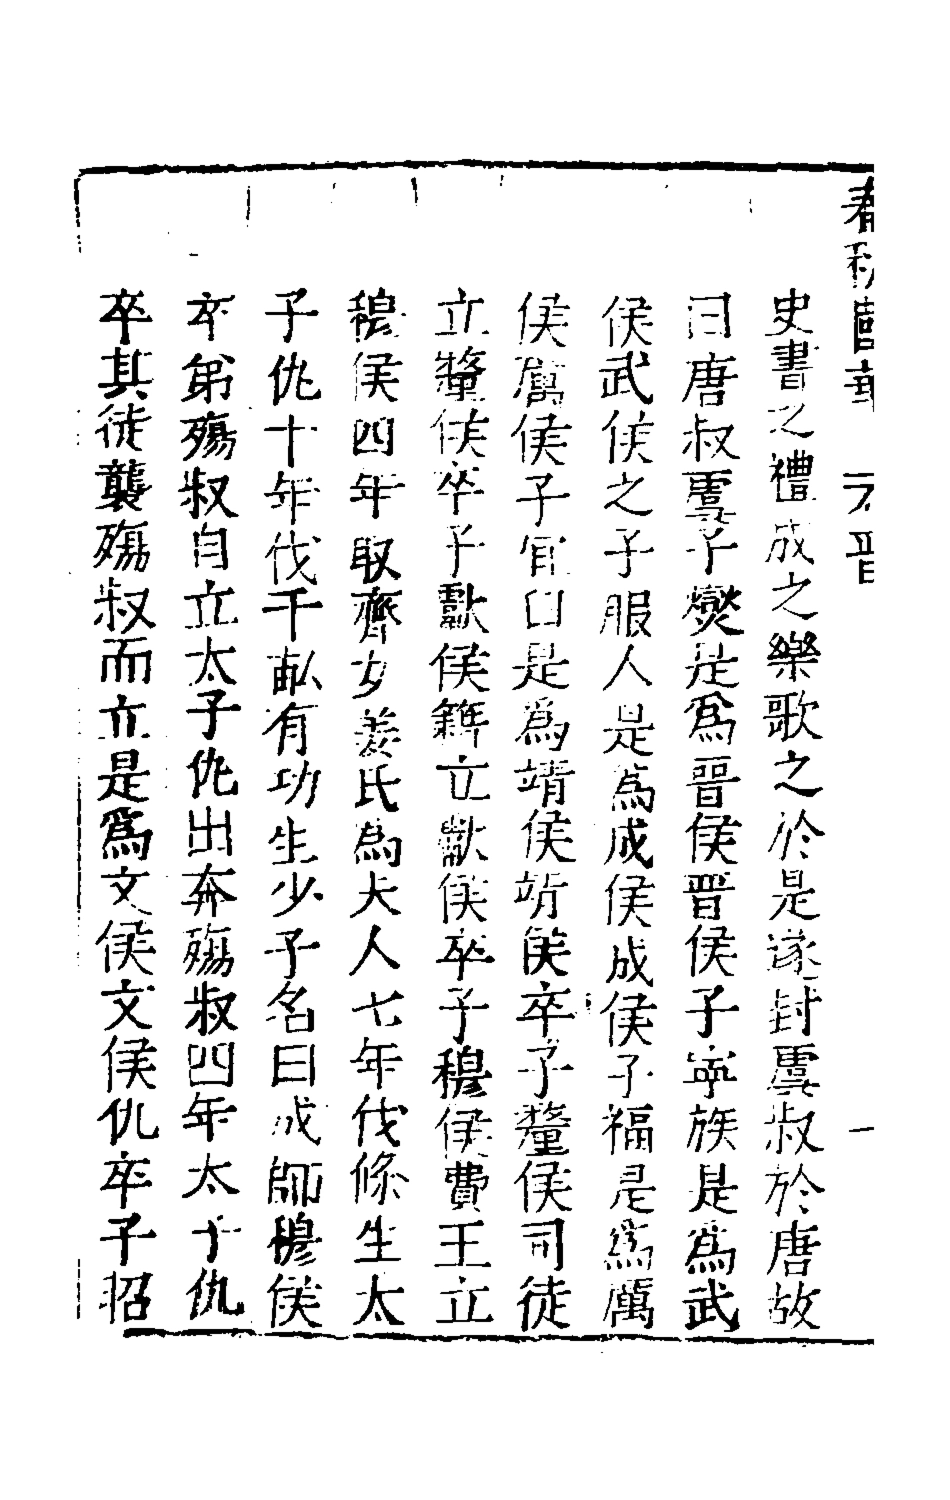 春秋國華 晉 一
史書之禮成之樂歌之於是遂封虞叔於唐故
曰唐叔虞子燮是爲晉侯晉侯子寧族是爲武
侯武侯之子服人是爲成侯成侯子福是爲厲
侯厲侯子宜臼是爲靖侯靖侯卒子釐侯司徒
立釐侯卒子獻侯籍立獻侯卒子穆侯費王立
穆侯四年取齊女姜氏爲夫人七年伐條生太
子仇十年伐千畝有功生少子名曰成師穆侯
卒弟殤叔自立太子仇出奔殤叔四年太子仇
卒其徒襲殤叔而立是爲文侯文侯仇卒子招